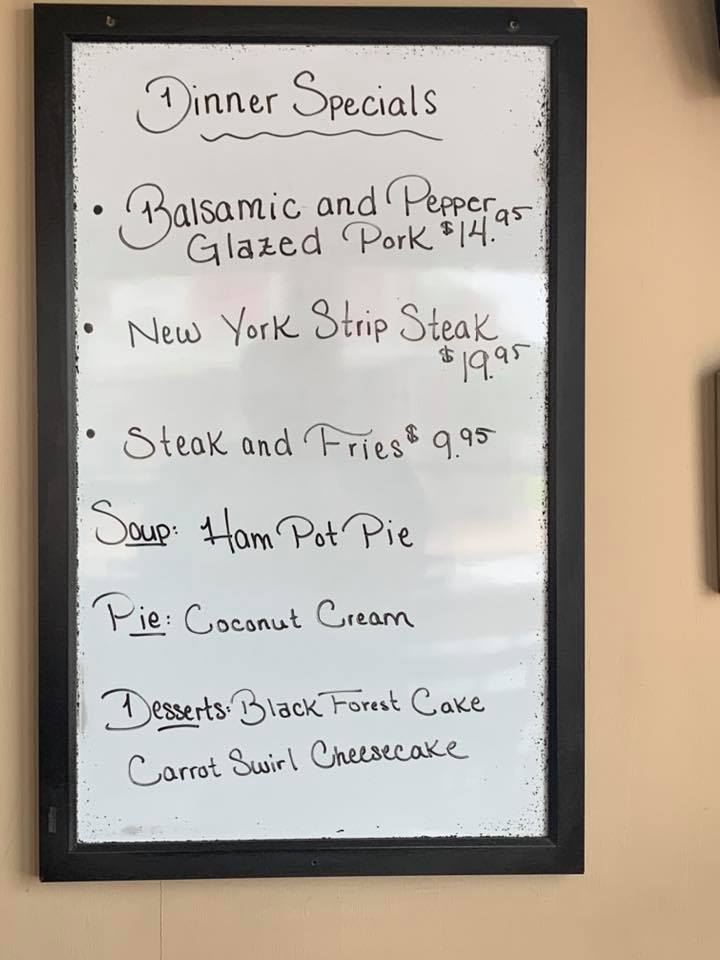 Dinner Specials
• Balsamic and Pepper
Glazed Pork $14.95
• New York Strip Steak
$19.95
• Steak and Fries $9.95
Soup: Ham Pot Pie
Pie: Coconut Cream
Desserts: Black Forest Cake
Carrot Swirl Cheesecake